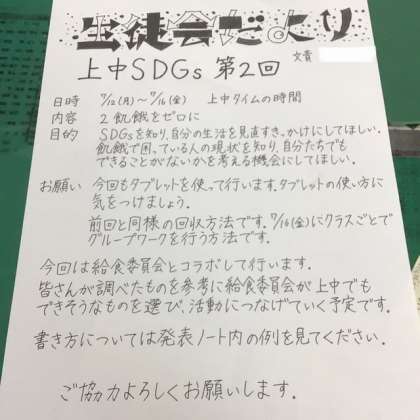 生徒会だより
文責
上中SDGs 第2回
日時 7/12(月)～7/16(金) 上中タイムの時間
内容 2 飢餓をゼロに
目的 SDGsを知り、自分の生活を見直すきっかけにしてほしい。
飢餓で困っている人の現状を知り、自分たちでも
できることがないかを考える機会にしてほしい。
お願い 今回もタブレットを使って行います。タブレットの使い方に
気をつけましょう。
前回と同様の回収方法です。7/16(金)にクラスごとで
グループワークを行う方法です。
今回は給食委員会とコラボして行います。
皆さんが調べたものを参考に給食委員会が上中でも
できそうなものを選び、活動につなげていく予定です。
書き方については発表ノート内の例を見てください。
ご協力よろしくお願いします.